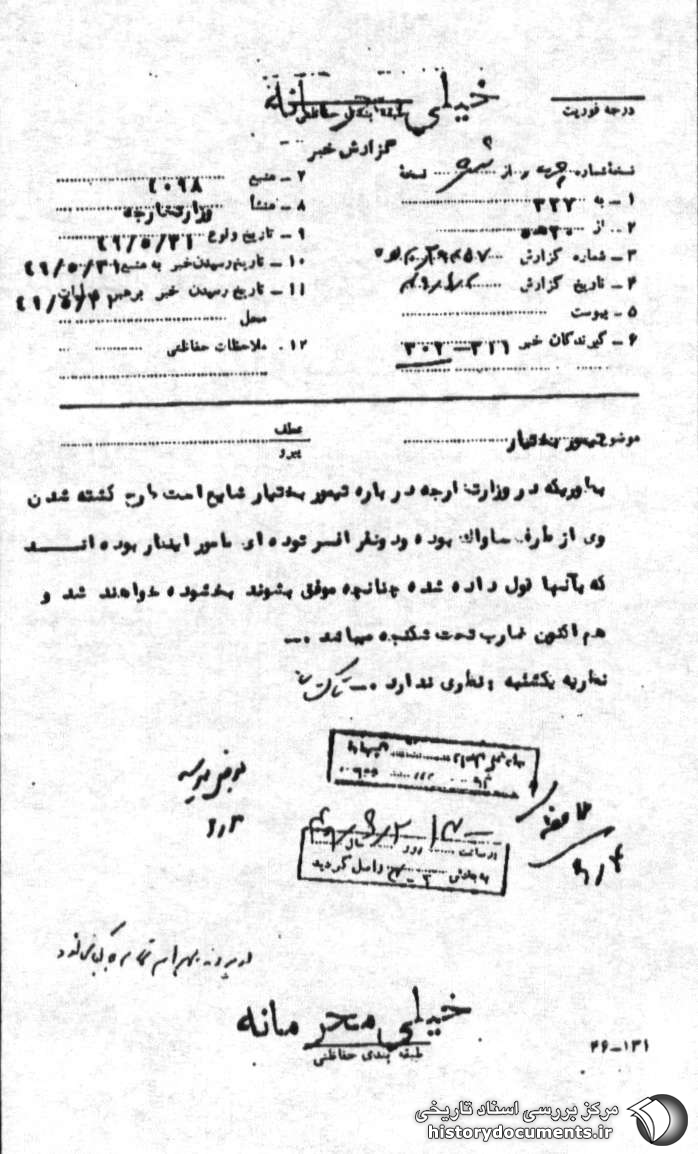 خیلی محرمانه
طبقه بندی حفاظتی
درجه فوریت
گزارش خبر
نسخهٔ شماره از نسخهٔ
۱ ـ به ۳۲۲
۲ ـ از ۵۰۲۰
۳ ـ شماره گزارش
۴ ـ تاریخ گزارش
۵ ـ پیوست
۶ ـ گیرندگان خبر ۳۱۱ــ۳۰۲
۷ ـ منبع ۴۰۹۸
۸ ـ منشأ وزارتخارجه
۹ ـ تاریخ وقوع ۴۹/۵/۳۱
۱۰ ـ تاریخ رسیدن خبر به منبع ۴۹/۵/۳۱
۱۱ ـ تاریخ رسیدن خبر برهبر عملیات ۴۹/۵/۳۱
محل
۱۲ ـ ملاحظات حفاظتی
موضوع تیمور بختیار
عطف
پیرو
بطوریکه در وزارتخارجه درباره تیمور بختیار شایع است طرح کشته شدن
وی از طرف ساواک بوده و دونفر افسر توده ای مامور اینکار بوده انــــد
که بآنها قول داده شده چنانچه موفق بشوند بخشوده خواهند شد و
هم اکنون ضارب تحت شکنجه میباشد ۰ــ
نظریه یکشنبه : نظری ندارد ۰ــ
در ساعت روز سال
به بخش واصل گردید
خیلی محرمانه
طبقه بندی حفاظتی
۴۶ــ۱۳۱
مرکز بررسی اسناد تاریخی
historydocuments.ir